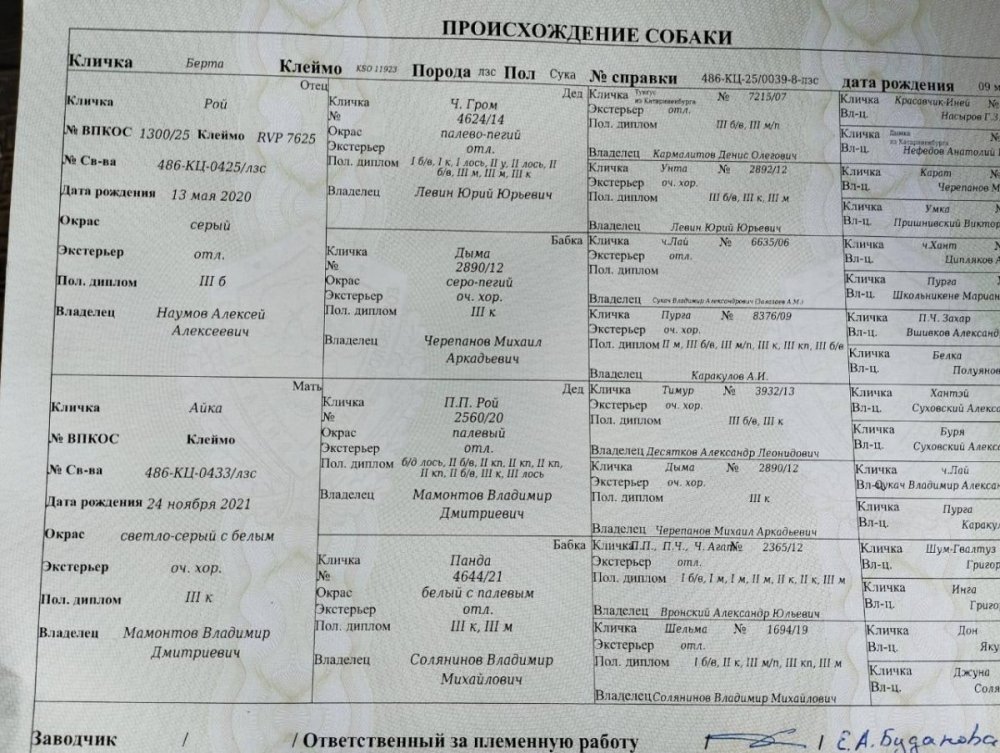 ПРОИСХОЖДЕНИЕ СОБАКИ
Кличка Берта Клеймо KSO 11923 Порода лзс Пол Сука № справки 486-КЦ-25/0039-8-лзс дата рождения 09 м
Отец
Кличка Рой
№ ВПКОС 1300/25 Клеймо RVP 7625
№ Св-ва 486-КЦ-0425/лзс
Дата рождения 13 мая 2020
Окрас серый
Экстерьер отл.
Пол. диплом III б
Владелец Наумов Алексей
Алексеевич
Мать
Кличка Айка
№ ВПКОС Клеймо
№ Св-ва 486-КЦ-0433/лзс
Дата рождения 24 ноября 2021
Окрас светло-серый с белым
Экстерьер оч. хор.
Пол. диплом III к
Владелец Мамонтов Владимир
Дмитриевич
Дед
Кличка Ч. Гром
№ 4624/14
Окрас палево-пегий
Экстерьер отл.
Пол. диплом I б/в, I к, I лось, II у, II лось, II
б/в, III м, III м, III к
Владелец Левин Юрий Юрьевич
Бабка
Кличка Дыма
№ 2890/12
Окрас серо-пегий
Экстерьер оч. хор.
Пол. диплом III к
Владелец Черепанов Михаил
Аркадьевич
Дед
Кличка П.П. Рой
№ 2560/20
Окрас палевый
Экстерьер отл.
Пол. диплом б/д лось, II б/в, II кп, II кп, II кп,
II кп, II б/в, III к, III лось
Владелец Мамонтов Владимир
Дмитриевич
Бабка
Кличка Панда
№ 4644/21
Окрас белый с палевым
Экстерьер отл.
Пол. диплом III к, III м
Владелец Солянинов Владимир
Михайлович
Кличка Тунгус из Катариненбурга № 7215/07
Экстерьер отл.
Пол. диплом III б/в, III м/п
Владелец Кармалитов Денис Олегович
Кличка Унта № 2892/12
Экстерьер оч. хор.
Пол. диплом III б/в, III к, III м
Владелец Левин Юрий Юрьевич
Кличка ч.Лай № 6635/06
Экстерьер отл.
Пол. диплом
Владелец Сукач Владимир Александрович
Кличка Пурга № 8376/09
Экстерьер оч. хор.
Пол. диплом II м, III б/в, III м/п, III к, III кп, III б/в
Владелец Каракулов А.И.
Кличка Тимур № 3932/13
Экстерьер оч. хор.
Пол. диплом III б/в, III к
Владелец Десятков Александр Леонидович
Кличка Дыма № 2890/12
Экстерьер оч. хор.
Пол. диплом III к
Владелец Черепанов Михаил Аркадьевич
Кличка П.П., П.Ч., Ч. Агат № 2365/12
Экстерьер отл.
Пол. диплом I б/в, I м, I м, II м, II к, II к, III м
Владелец Вронский Александр Юльевич
Кличка Шельма № 1694/19
Экстерьер отл.
Пол. диплом I б/в, II к, III м/п, III кп, III м
Владелец Солянинов Владимир Михайлович
Кличка Красавчик-Иней №
Вл-ц. Насыров Г.З
Кличка из Катаринненбурга №
Вл-ц. Нефедов Анатолий
Кличка Карат №
Вл-ц. Черепанов М
Кличка Умка №
Вл-ц. Пришнивский Виктор
Кличка ч.Хант №
Вл-ц. Ципляков А
Кличка Пурга №
Вл-ц. Школьникене Мариан
Кличка П.Ч. Захар
Вл-ц. Вшивков Александ
Кличка Белка
Вл-ц. Полуянов
Кличка Хантэй
Вл-ц. Суховский Алекс
Кличка Буря
Вл-ц. Суховский Алекс
Кличка ч.Лай
Вл-ц. Сукач Владимир Алекса
Кличка Пурга
Вл-ц. Каракул
Кличка Шум-Гвалтуз
Вл-ц. Григор
Кличка Инга
Вл-ц. Григо
Кличка Дон
Вл-ц. Яку
Кличка Джуна
Вл-ц. Соля
Заводчик / / Ответственный за племенную работу / Е.А. Буданова